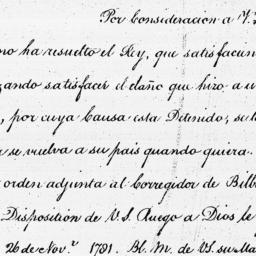 Por Consideracion a V.
ha resuelto el Rey, que satisfacien
satisfacer el daño que hizo a u
, por cuya Causa esta Detenido, se le
se vuelva a su pais quando quiera.
orden adjunta al Corregidor de Bilb
Disposición de V.S. Ruego a Dios le
26 de Nov.e 1781. Bl. M. de VS. su Ma